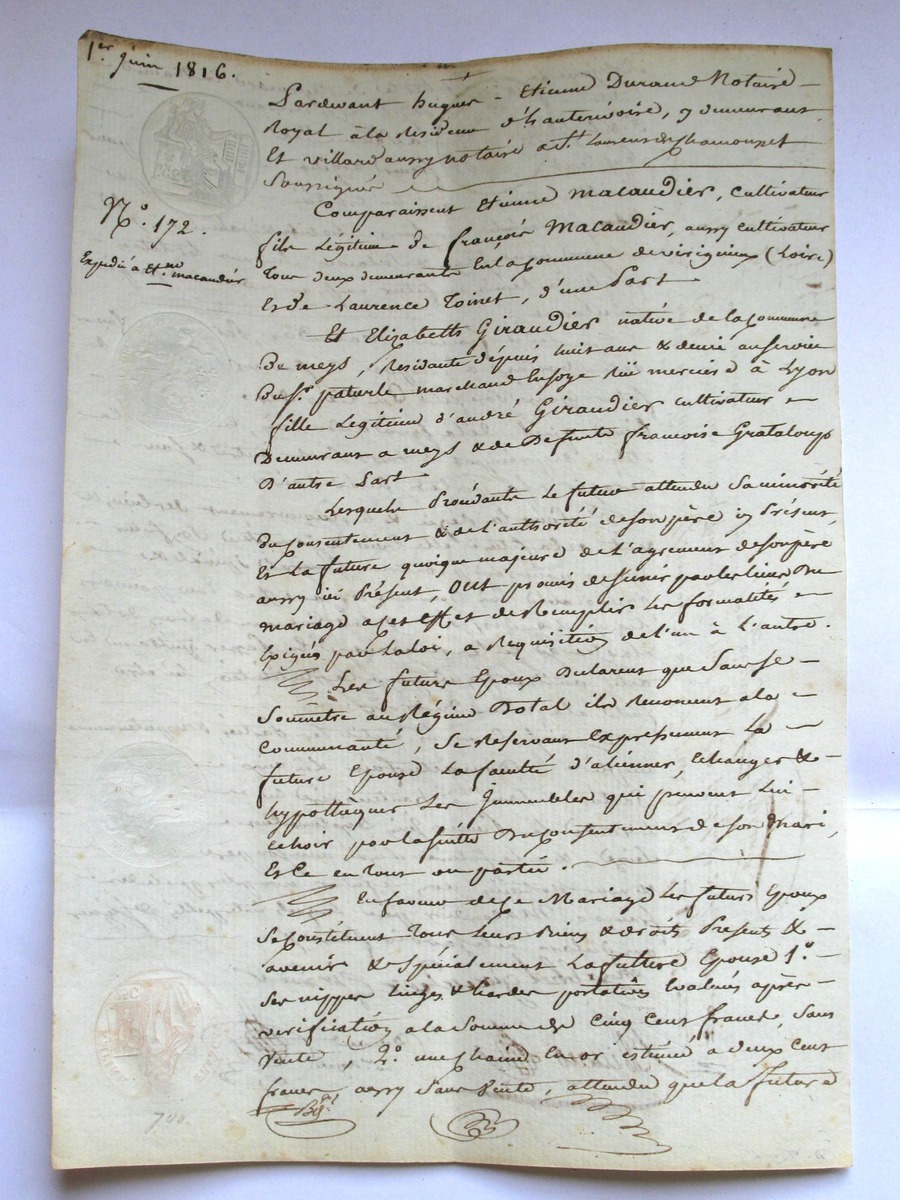 1er Juin 1816.
Pardevant hugues - Etienne Durand Notaire
Royal à la Residence d'hauterivoire, y demeurant
Et villard aussy notaire a St Laurent de Chamousset
Soussignés
N° 172.
Expédié à Etne macaudier
Comparaissent Etienne Macaudier, cultivateur
fils Légitime de françois Macaudier, aussy cultivateur
Tous deux demeurants En la Commune de virigneux (Loire)
Et de Laurence Toinet, d'une Part
Et Elizabeth Giraudier native de la Commune
De meys, Residante depuis huit ans & demie au service
Du Sr. paturle marchand En soye Rüe merciere à Lyon
fille Legitime d'andré Giraudier cultivateur
Demeurant a meys & de Defunte françoise Grataloup
D'autre Part
Lesquels Procédants Le futur attendu Sa minorité
Du Consentement & de L'authorité de Son père icy Présent,
Et La future quoique majeure de L'agrement de Son père
aussy ici Présent, ont promis de S'unir par les liens Du
mariage a cet effet de Remplir Les formalités
Exigées par La loi, a Requisition de L'un à L'autre.
Les futurs Epoux Déclarent que Sans Se
Soumettre au Régime Dotal ils Renoncent a la
Communauté, Se Reservant Expressement La
future Epouse La faculté d'aliener, Echanger &
hypothèquer Les Immeubles qui peuvent Lui
Echoir par la suitte Du Consentement de Son Mari,
Et Ce en Tout ou partie.
En faveur de Ce Mariage Les futurs Epoux
Se Constituent Tous Leurs Biens & droits Presents &
avenir & Spécialement La future Epouse 1°.
Ses nippes Linges & hardes portatives Evalués après
verification a la Somme de Cinq Cent francs, Sans
Vente, 2° une Chaine En or estimée a deux Cent
francs aussy Sans Vente, attendu que La future
700.